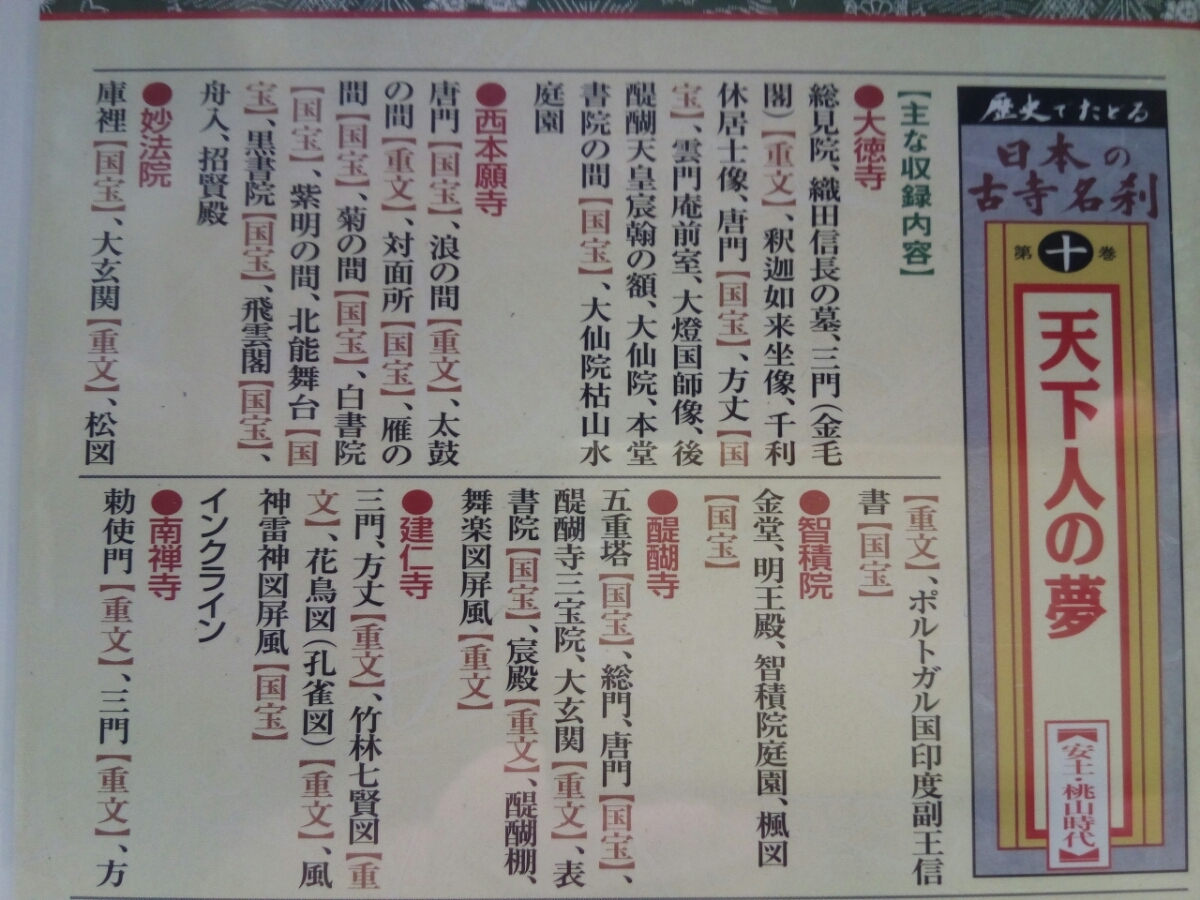 歴史でたどる
日本の
古寺名刹
第十巻
天下人の夢
【安土・桃山時代】
【主な収録内容】
●大徳寺
総見院、織田信長の墓、三門(金毛
閣)【重文】、釈迦如来坐像、千利
休居士像、唐門【国宝】、方丈【国
宝】、雲門庵前室、大燈国師像、後
醍醐天皇宸翰の額、大仙院、本堂
書院の間【国宝】、大仙院枯山水
庭園
●西本願寺
唐門【国宝】、浪の間【重文】、太鼓
の間【重文】、対面所【国宝】、雁の
間【国宝】、菊の間【国宝】、白書院
【国宝】、紫明の間、北能舞台【国
宝】、黒書院【国宝】、飛雲閣【国宝】、
舟入、招賢殿
●妙法院
庫裡【国宝】、大玄関【重文】、松図
【重文】、ポルトガル国印度副王信
書【国宝】
●智積院
金堂、明王殿、智積院庭園、楓図
【国宝】
●醍醐寺
五重塔【国宝】、総門、唐門【国宝】、
醍醐寺三宝院、大玄関【重文】、表
書院【国宝】、宸殿【重文】、醍醐棚、
舞楽図屏風【重文】
●建仁寺
三門、方丈【重文】、竹林七賢図【重
文】、花鳥図(孔雀図)【重文】、風
神雷神図屏風【国宝】
インクライン
●南禅寺
勅使門【重文】、三門【重文】、方